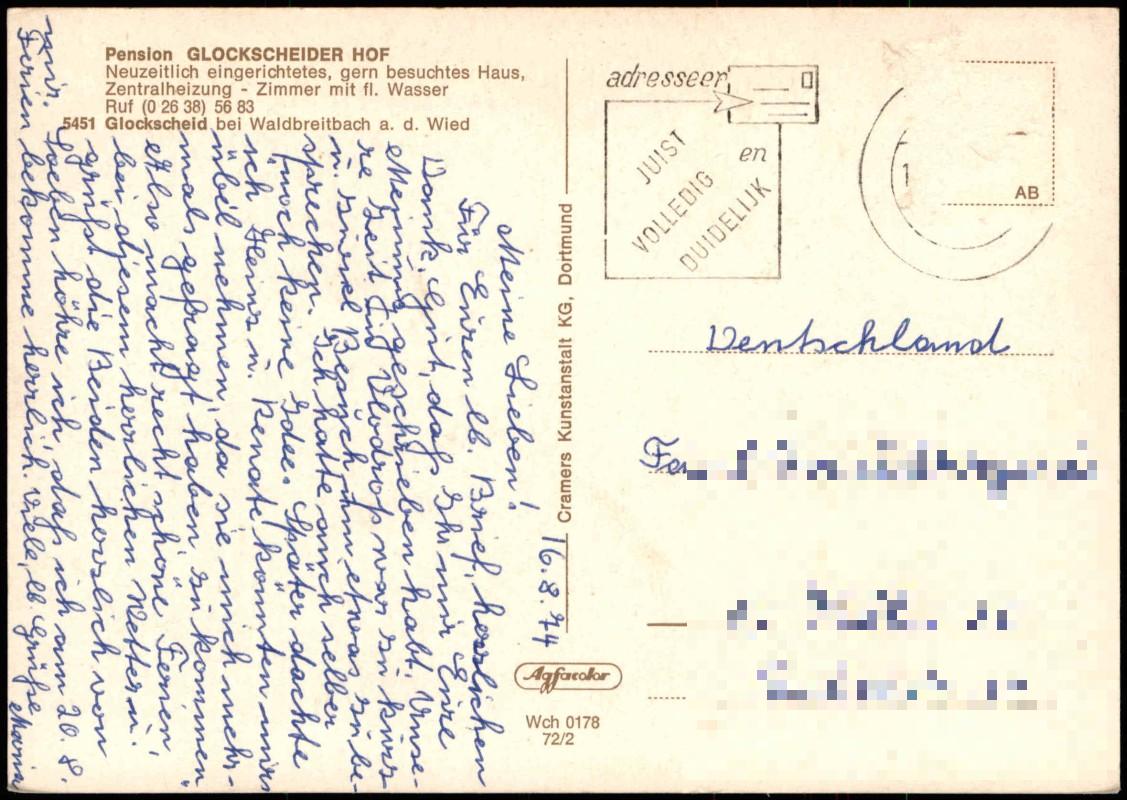 Pension GLOCKSCHEIDER HOF
Neuzeitlich eingerichtetes, gern besuchtes Haus,
Zentralheizung - Zimmer mit fl. Wasser
Ruf (0 26 38) 56 83
5451 Glockscheid bei Waldbreitbach a. d. Wied
16.8.74
Meine Lieben!
Für Euren lb. Brief, herzlichen
Dank. Gut, daß Ihr mir Eure
Meinung geschrieben habt. Unse-
re Zeit für Vlodrop war zu kurz
u. zuviel Besuch, um etwas zu be-
sprechen. Ich hatte mich selber
noch keine Idee. Später dachte
ich Heinz u. Renate könnten mirs
übel nehmen, da sie mich mehr-
mals gefragt haben zu kommen.
Also macht recht schöne Ferien
bei diesem herrlichen Wetter u.
grüßt die Beiden herzlich von
mir. Soeben höhre ich, daß ich am 20.8.
Ferien bekomme herrlich. Viele, lb. Grüße
Maria
Cramers Kunstanstalt KG, Dortmund
Agfacolor
Wch 0178
72/2
adresseer
JUIST
en
VOLLEDIG
DUIDELIJK
1
AB
Deutschland